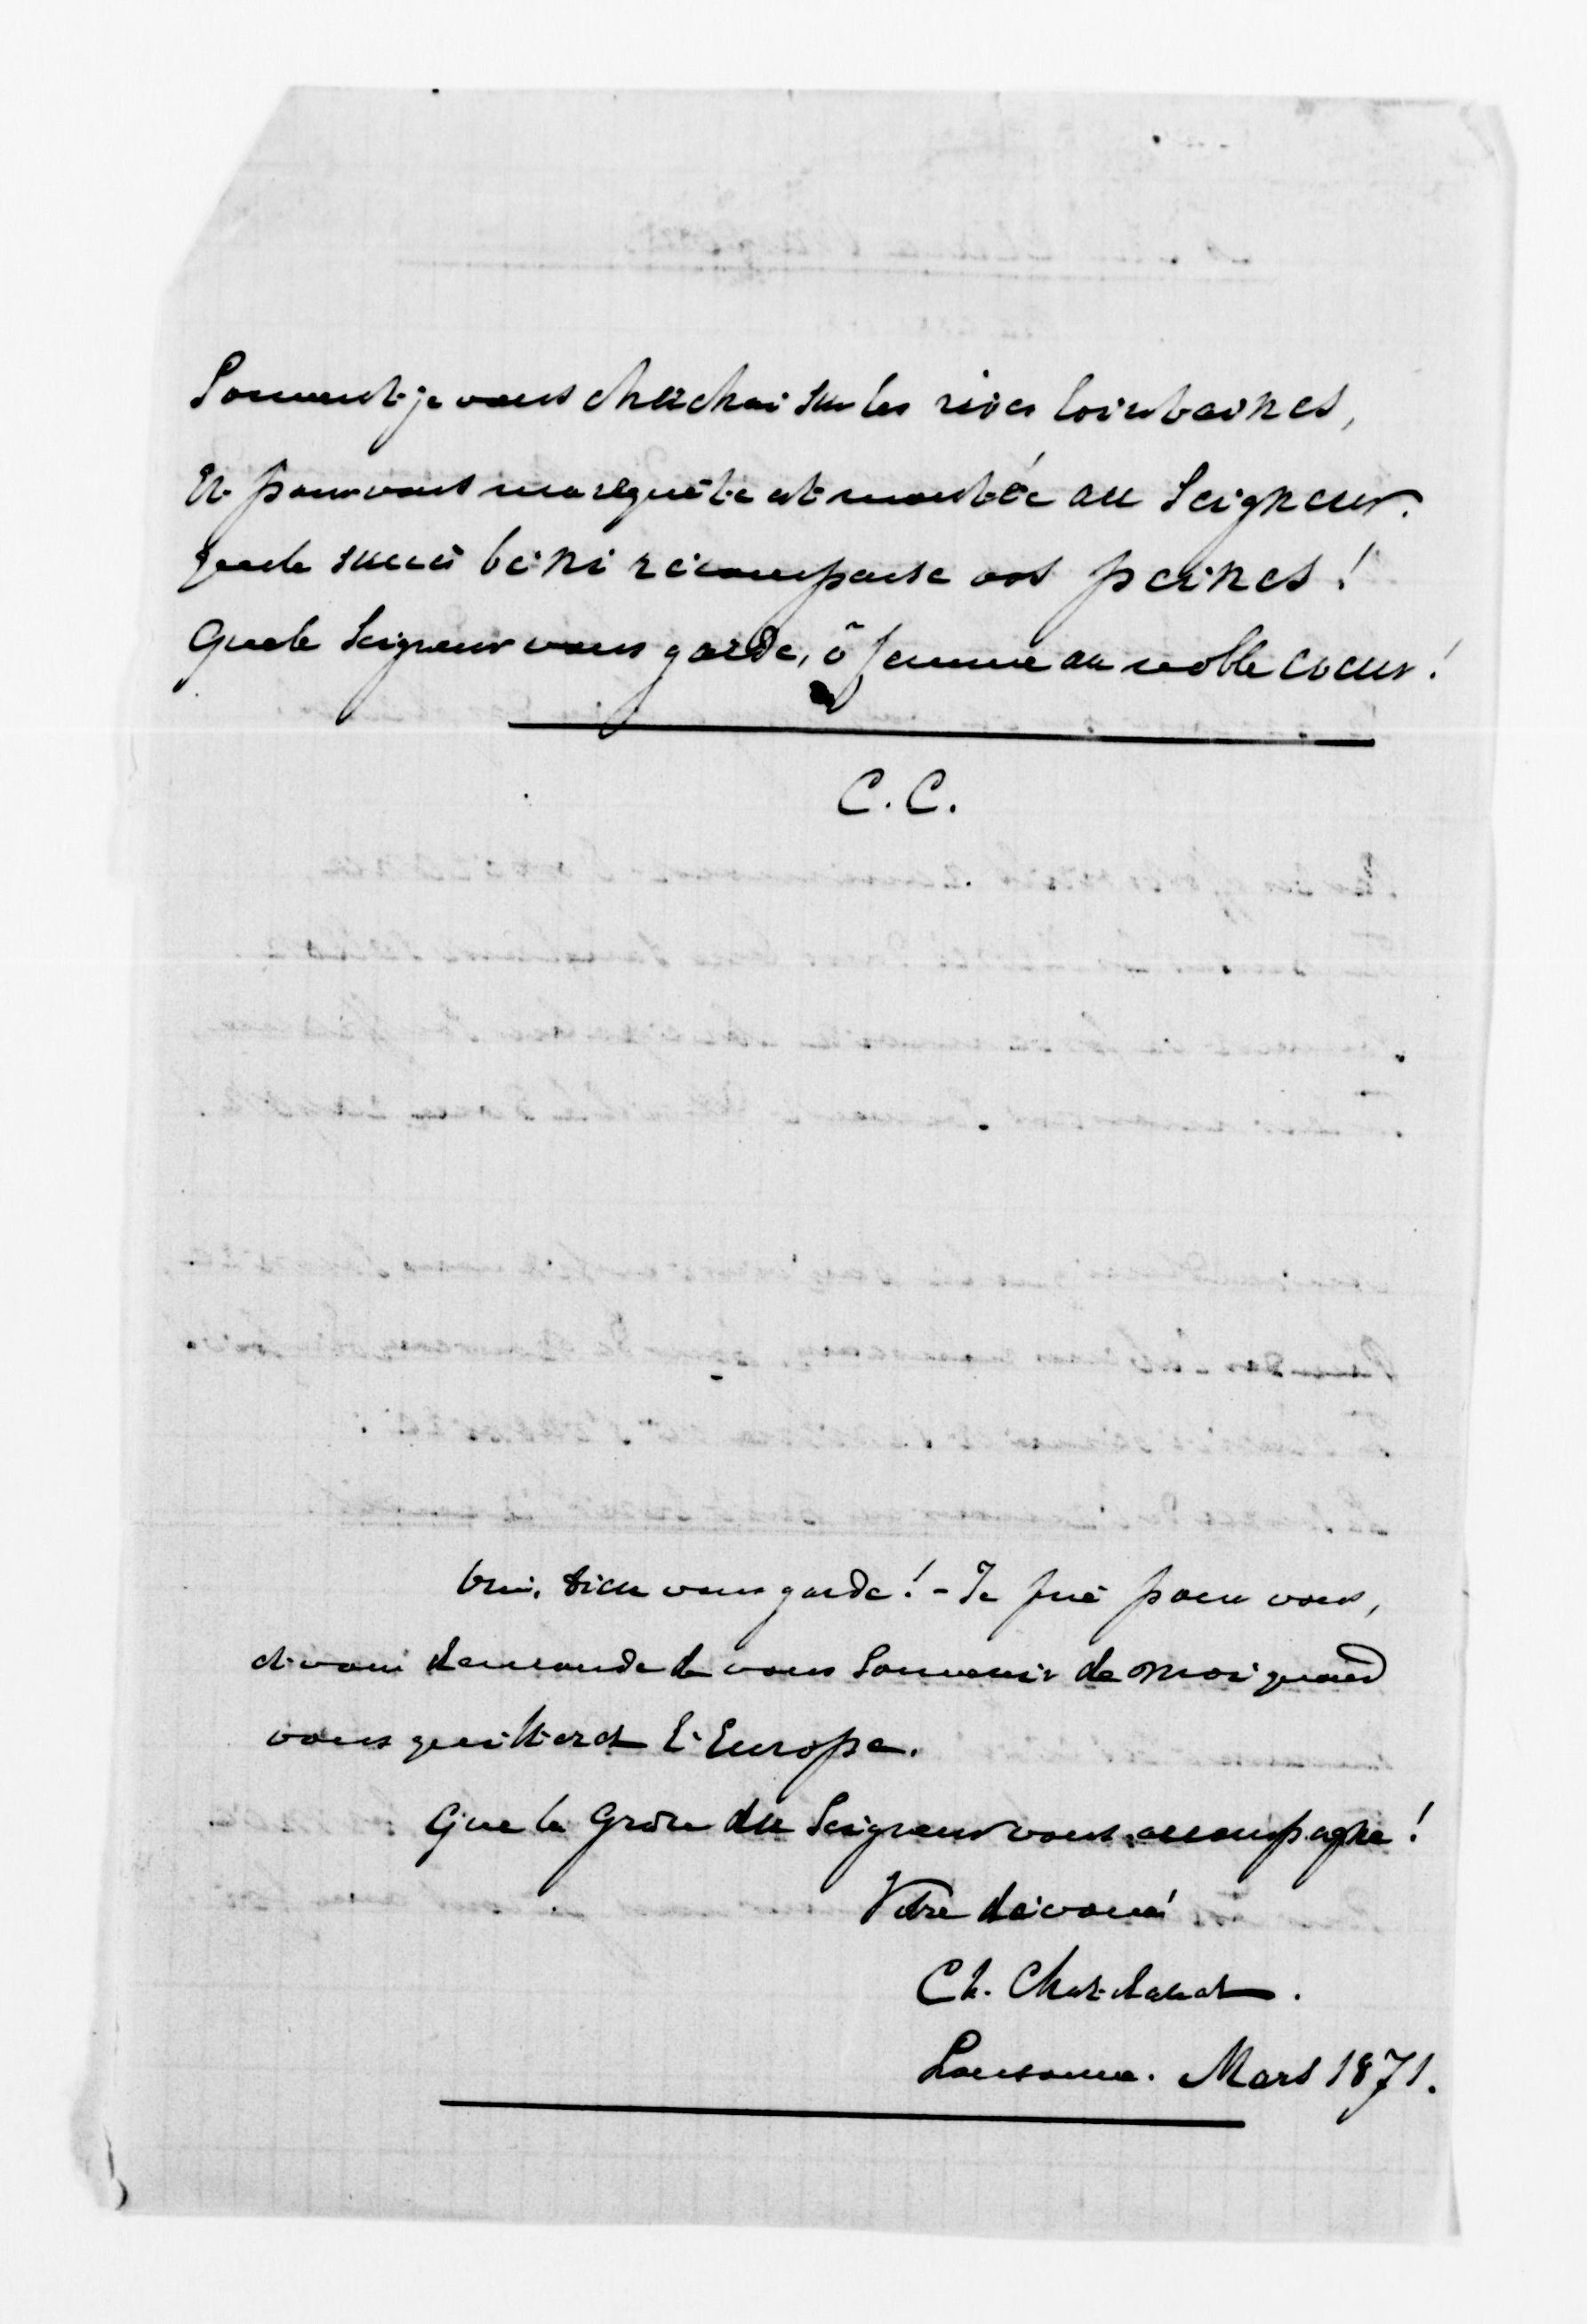 Souvent je vous cherchai sur les rives lointaines,
Et pour vous ma requête est montée au Seigneur.
que le succès béni récompense vos peines !
Que le Seigneur vous garde, ô femme au noble coeur !
C. C.
Oui, Dieu vous garde ! - Je prie pour vous,
et vous demande de vous souvenir de moi quand
vous quitterez l'Europe.
Que la Grâce du Seigneur vous accompagne !
Votre dévoué
Ch. Chatelanat.
Lausanne. Mars 1871.